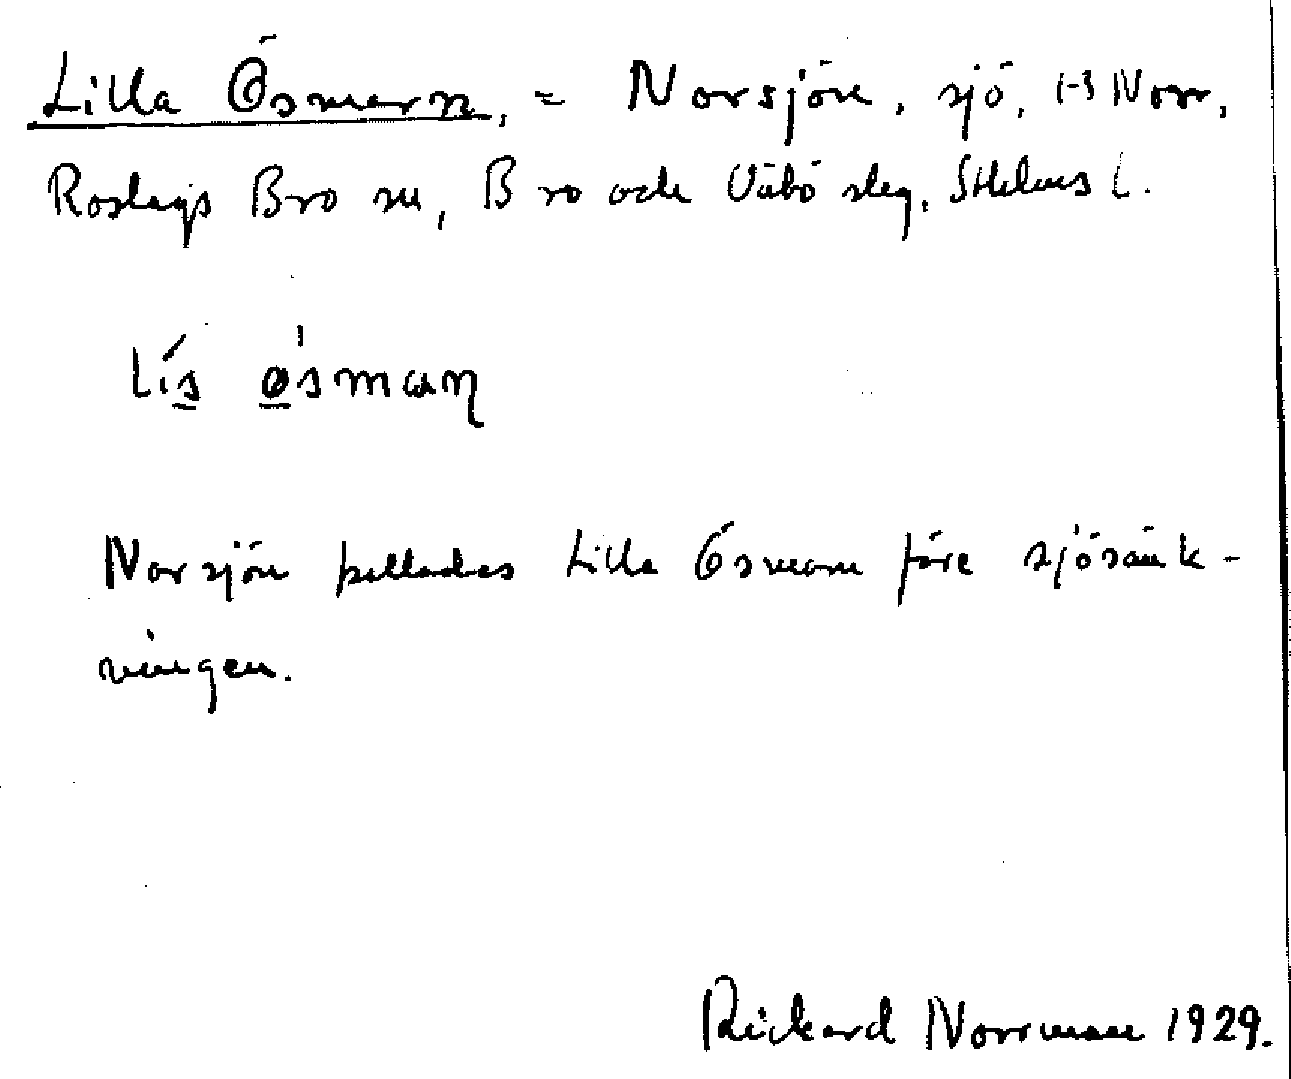 Lilla Ösmaren, = Norsjön, sjö, Norr,
Roslags Bro sn, Bro och Vätö slg, Sthlms l.
lís ø̱sman
Norsjön kallades Lilla Ösmaren före sjösänk-
ningen.
Rickard Norrman 1929.